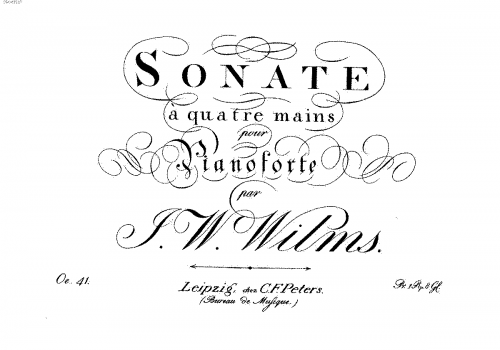 SONATE
à quatre mains
pour
Pianoforte
par
J. W. Wilms.
Oe. 41.
Leipzig, chez C.F. Peters.
(Bureau de Musique.)
Pr. 1 Rp. 8 Gl.